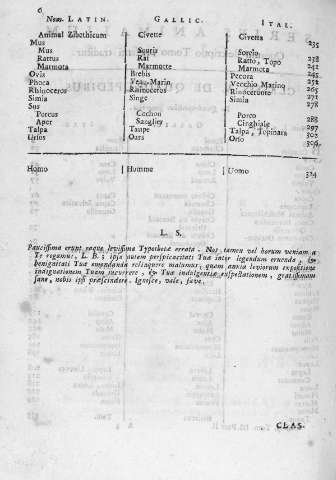 6
Nom. LATIN. GALLIC. ITAL.
Animal Zibethicum Civette Civetta 235
Mus
Mus Souris Sorcio 238
Rattus Rat Ratto, Topo 241
Marmota Marmotte Marmota 245
Ovis Brebis Pecora 252
Phoca Veau-Marin Vecchio Marino 265
Rhinoceros Rhinoceros Rinoceronte 271
Simia Singe Simia 278
Sus
Porcus Cochon Porco 288
Aper Sanglier Cinghiale 297
Talpa Taupe Talpa, Topinara 302
Ursus Ours Orso 306
Homo Homme Uomo 324
L. S.
Paucissima erunt eaque levissima Typothetæ errata. Nos tamen vel horum veniam a
Te rogamus, L. B.; ipsa autem perspicacitati Tuæ inter legendum eruenda, &
benignitati Tuæ emendanda relinquere malumus, quam anxia leviorum expositione
indignationem Tuam incurrere, & Tuæ indulgentiæ suspectationem, gratissimam
sane, nobis ipsi præscindere. Ignosce, vale, fave.
CLAS.